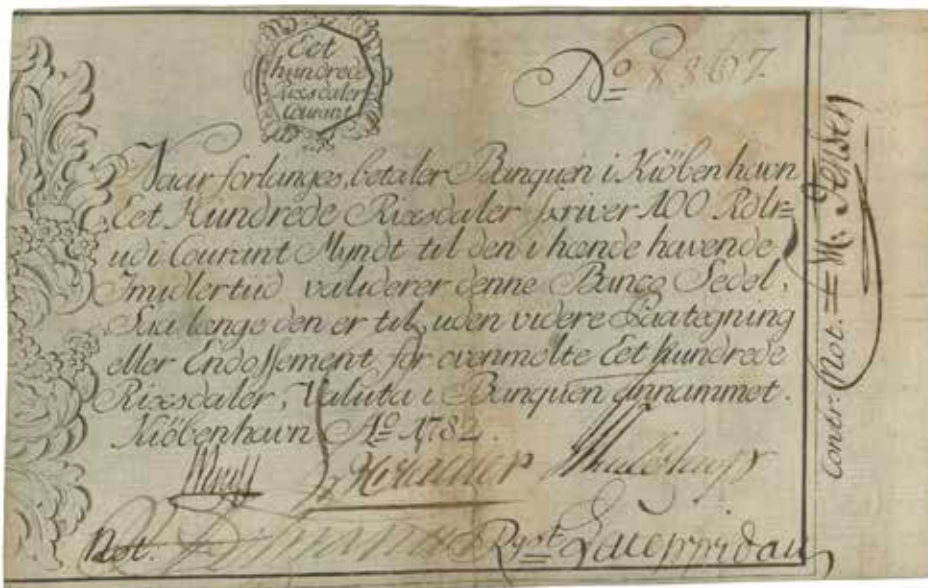 Eet
hundrede
Rixsdaler
Courant
No 8867
Naar forlanges, betaler Banquen i Kiöbenhavn
Eet Hundrede Rixsdaler skriver 100 Rdlr=
udi Courant Myndt til den i hænde havende
Imidlertid validerer denne Banco Sedel,
Saa længe den er til, uden videre Paategning
eller Endossement for ovenmelte Eet hundrede
Rixsdaler, Valuta i Banquen annammet.
Kiöbenhavn Ao 1782.
Not.
Contr: Not.